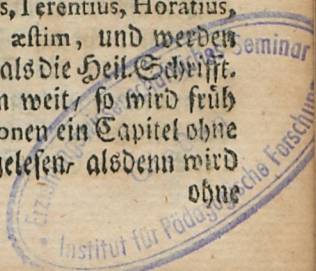 s, Terentius, Horatius,
æstim, und werden
als die Heil. Schrifft.
n weit/ so wird früh
onen ein Capitel ohne
gelesen/ alsdenn wird
ohne
Seminar
Institut für Pädagogische Forschung